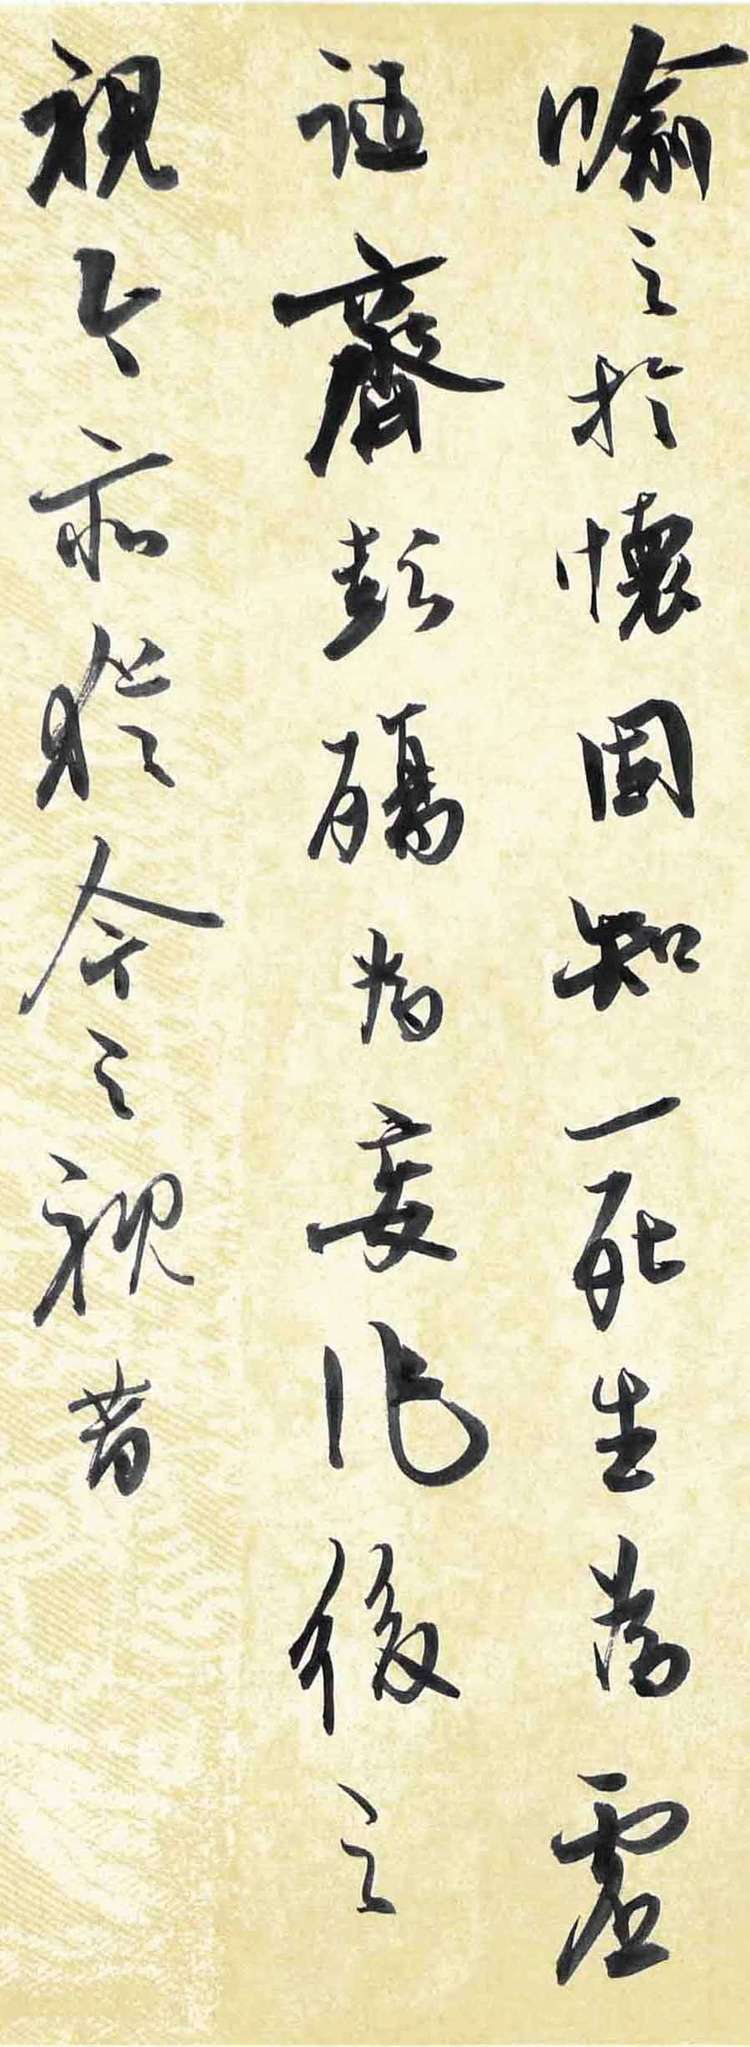 喻之於懷固知一死生為虛
誕齊彭殤為妄作後之
視今亦猶今之視昔